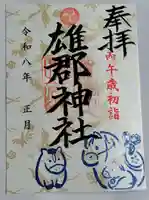 奉拝
丙午歳初詣
雄郡神社
令和八年 正月